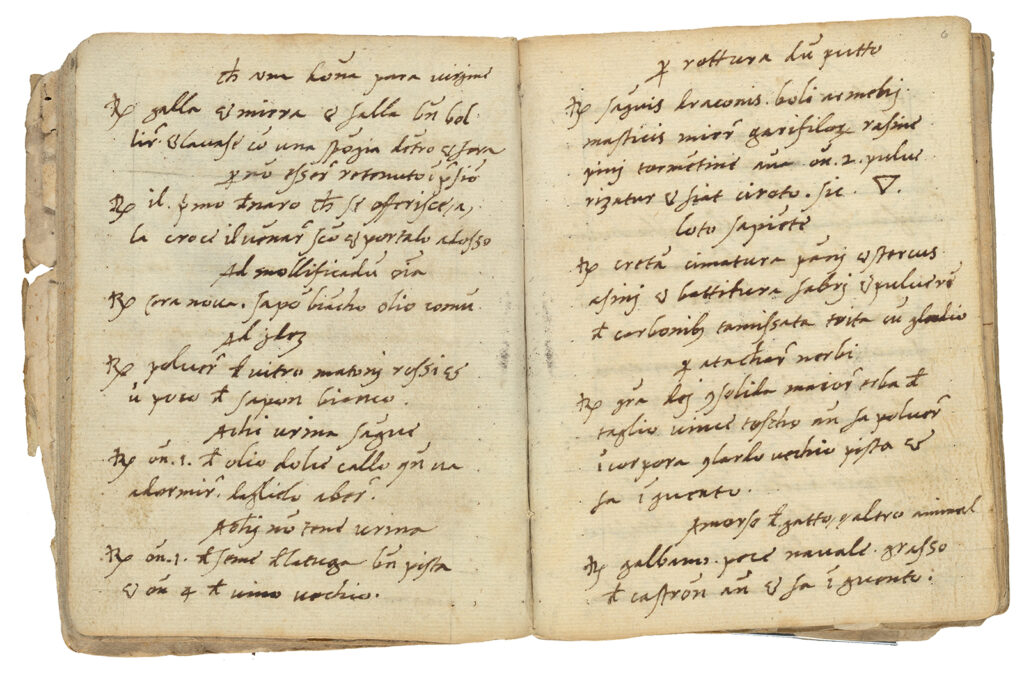 ch una dona para virgine
℞ galla & mirra & salla bn bol
lir & lavase co una spogia detro & fora
p no esser retenuto i psio
℞ il pmo denaro ch se offerisce a
la croce il venar sco & portalo adosso
Ad mollificadu oia
℞ cera nova. sapo biacho olio comu
Ad
℞ polver d vitro matonj rossi &
u poco d sapon bianco.
A chi urina sague
℞ on. 1. d olio dolce callo qn va
a dormir daglielo a ber.
A chj no tene urina
℞ on. 1. d seme d latuga bn pista
& on 4 d vino vechio.
6
p rottura du putto
℞ saguis draconis. boli armenij
masticis mirr garifiloꝝ rasine
pinj tormetine ana on. 2. pulve
rizatur & fiat ciroto. sic. ▽.
loto sapiete
℞ creta cimatura panj & stercus
asinj & battitura fabrj & pulvere
d carbonibꝫ tamissata trita cu gladio
p atachar nerbi
℞ gra dej solida maior erba d
taglio vince toscho an fa polver
icorpora lardo vechio pista &
fa igueto.
A morso d gatto, altro animal
℞ galbano. pece navale. grasso
d castron an & fa igueto.